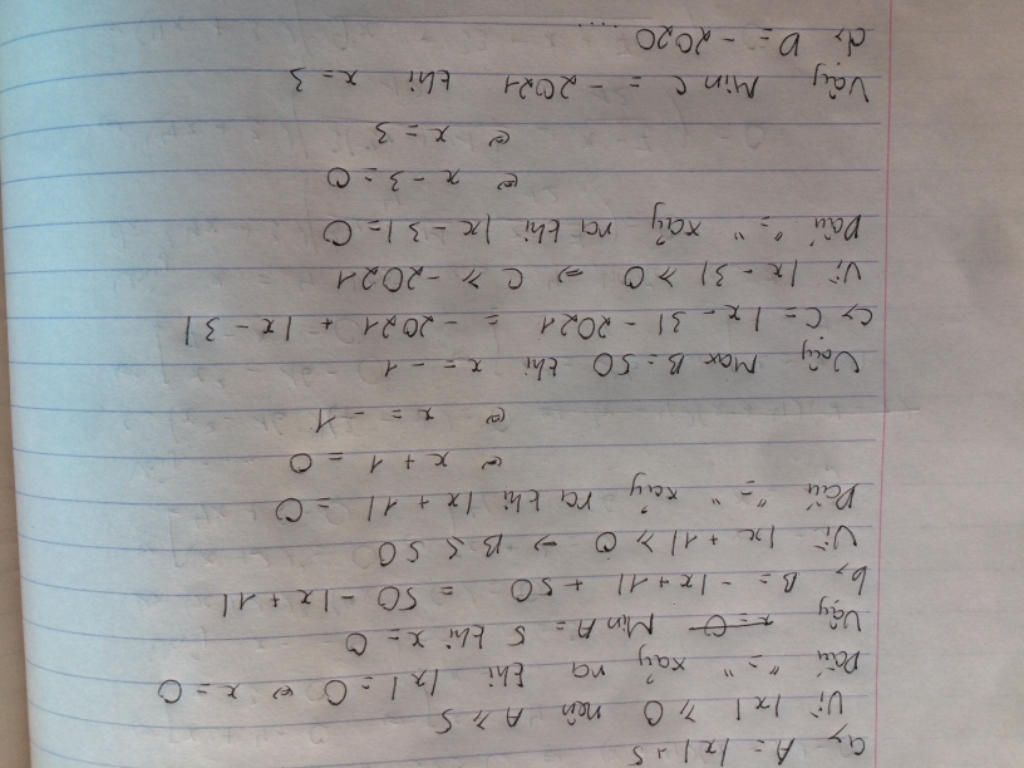 a, A = |x| + 5
Vì |x| ⩾ 0 nên A ⩾ 5
Dấu "=" xảy ra khi |x| = 0 ⇔ x = 0
Vậy Min A = 5 khi x = 0
b, B = -|x + 1| + 50 = 50 - |x + 1|
Vì |x + 1| ⩾ 0 ⇒ B ⩽ 50
Dấu "=" xảy ra khi |x + 1| = 0
⇔ x + 1 = 0
⇔ x = -1
Vậy Max B = 50 khi x = -1
c, C = |x - 3| - 2021 = -2021 + |x - 3|
Vì |x - 3| ⩾ 0 ⇒ C ⩾ -2021
Dấu "=" xảy ra khi |x - 3| = 0
⇔ x - 3 = 0
⇔ x = 3
Vậy Min C = -2021 khi x = 3
d, D = -2020